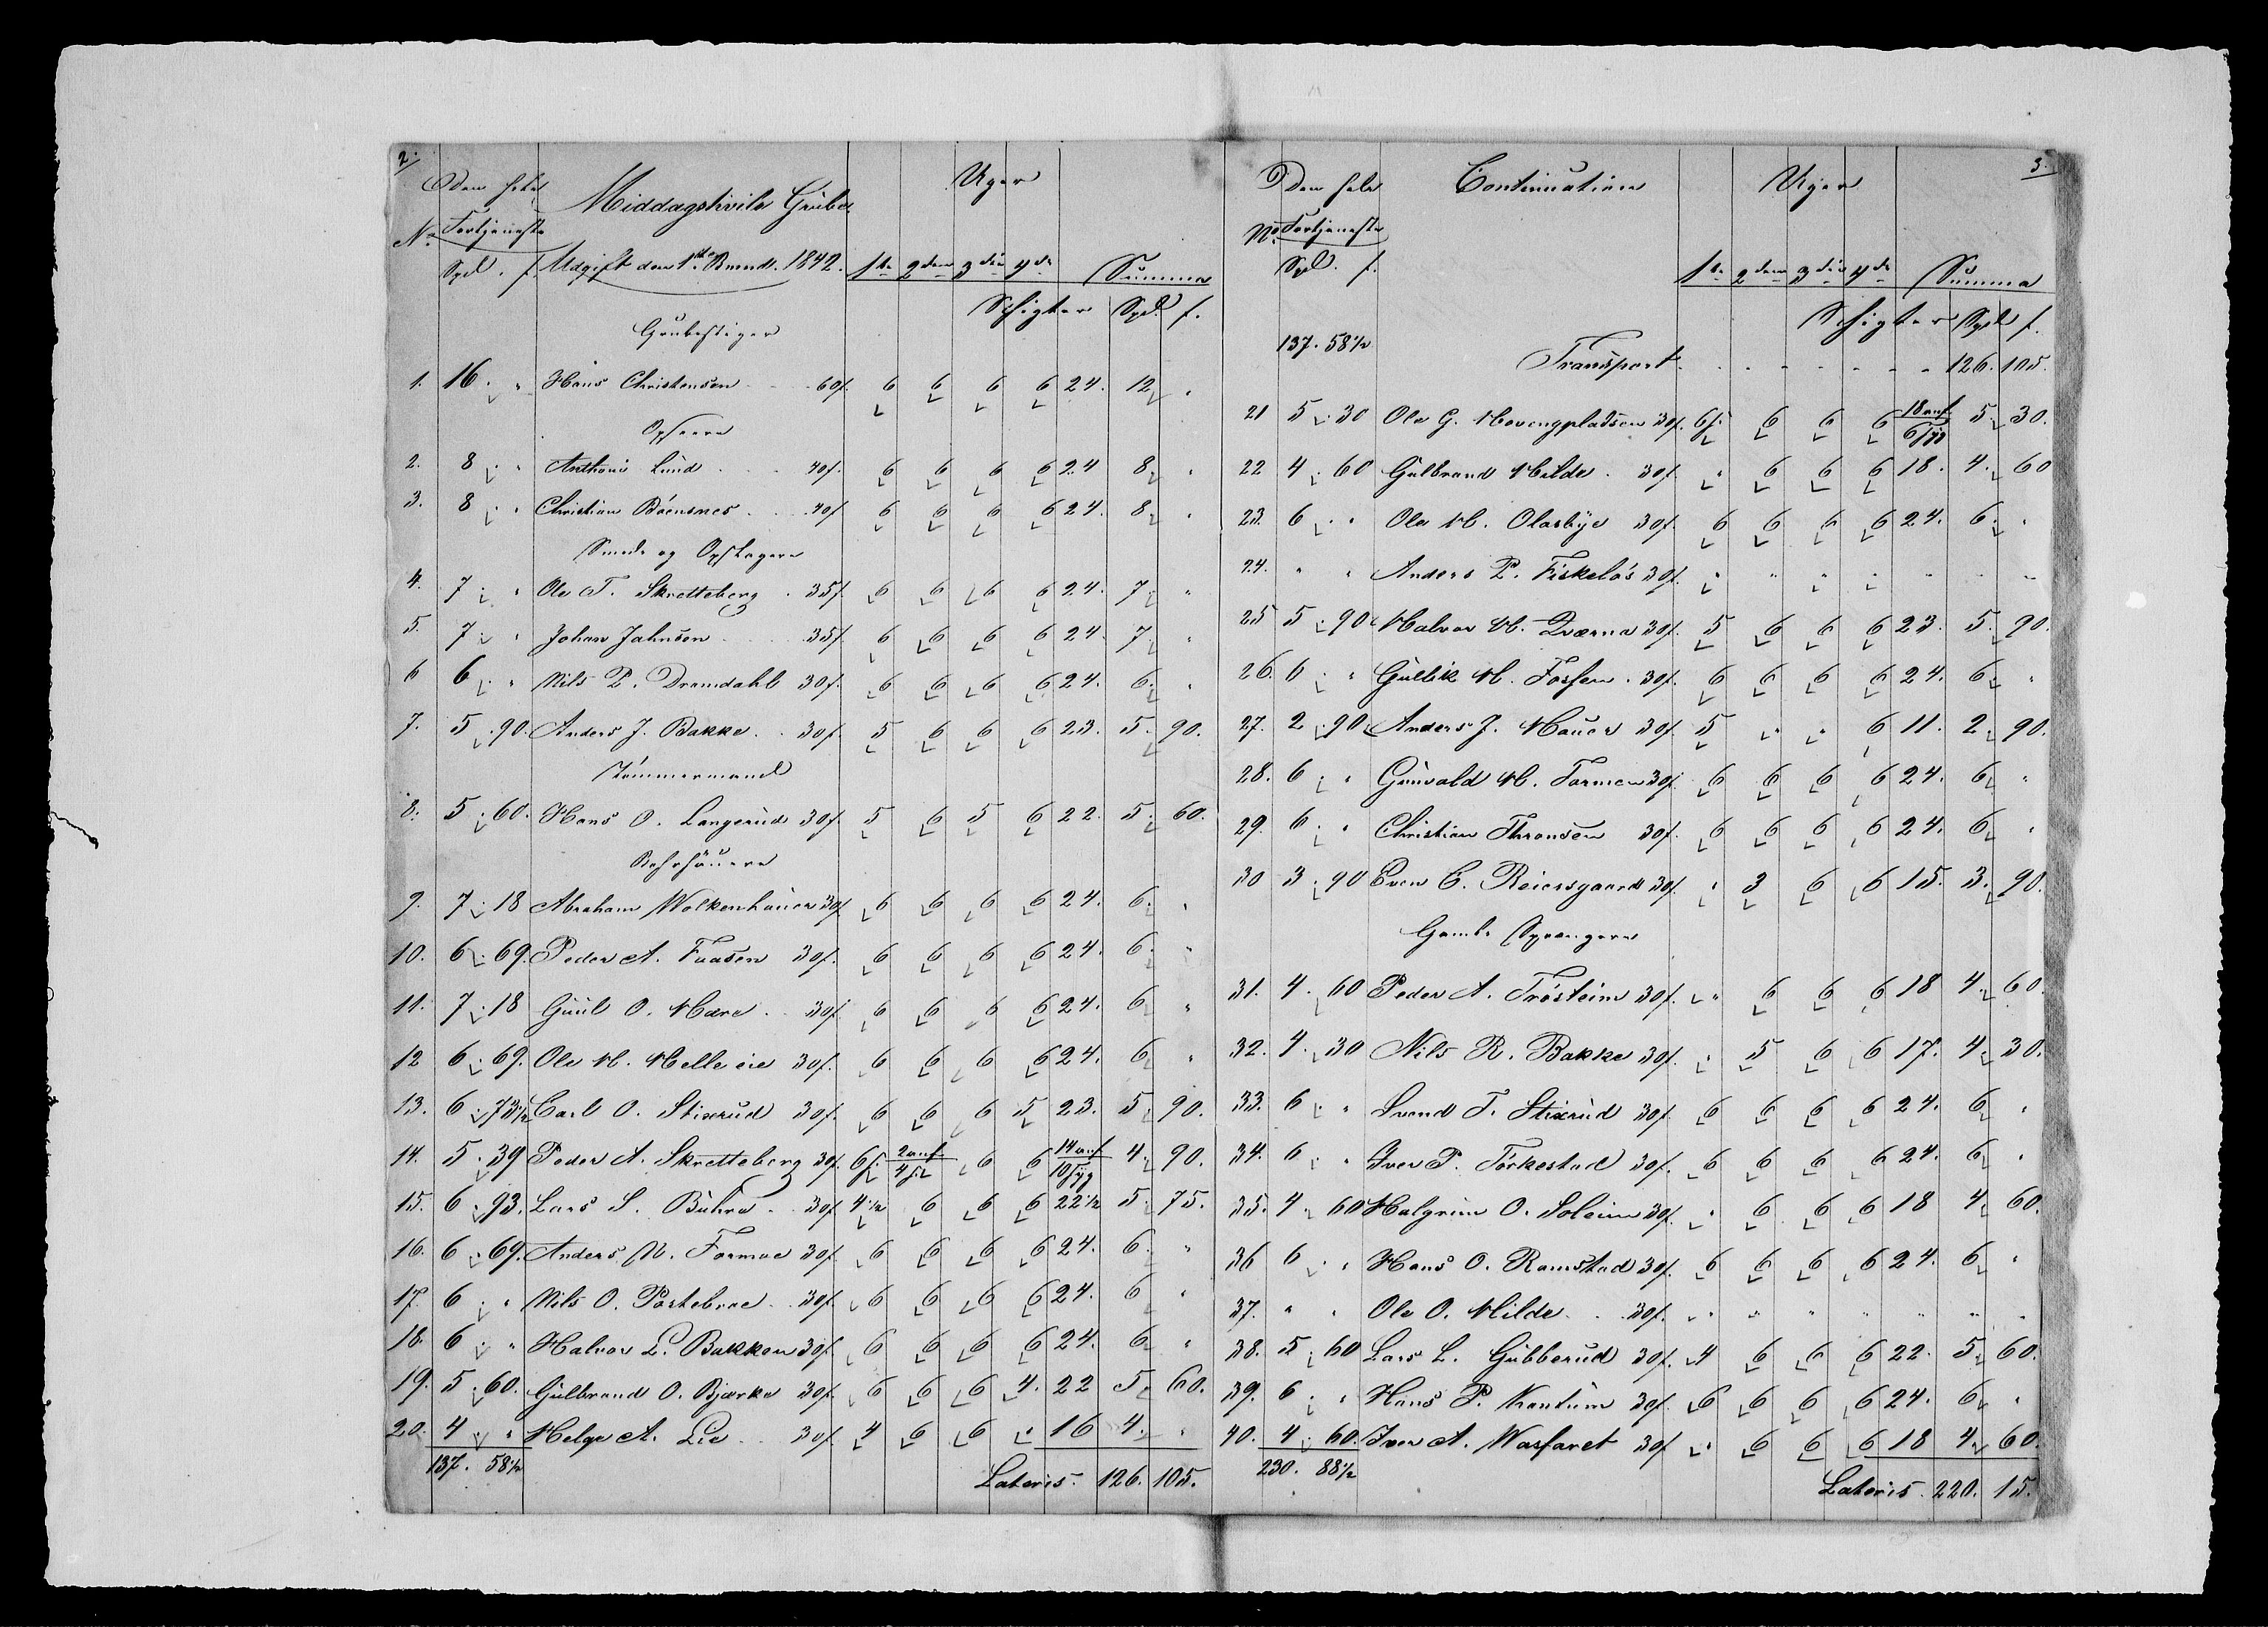 2.
Den hele Middagshvile Grube Uger
No Fortjeneste
Spd. s. Udgift den 1ste Bmd. 1842. 1te 2den 3die 4de Summa
Schigter Spd s.
Grubestiger
1. 16 . " Hans Christensen 60s. 6 6 6 6 24. 12 "
Opseere
2. 8 . " Anthoni Lund 40s. 6 6 6 6 24 8 "
3. 8 . " Christian Böensnes 40s 6 6 6 6 24. 8 "
Smede og Opstagere
4. 7 . " Ole T. Skretteberg 35s 6 6 6 6 24. 7 "
5. 7 . " Johan Jahnsen 35s 6 6 6 6 24 7. "
6 6 . " Nils P. Dramdahl 30s. 6 6 6 6 24. 6. "
7. 5 . 90. Anders J. Bakke 30s 5 6 6 6 23. 5. 90.
Tömmermænd
8. 5 . 60. Hans O. Langerud 30s 5 6 5 6 22. 5. 60.
Bohrhäuere
9. 7 . 18 Abraham Wolkenhauer 30s 6 6 6 6 24. 6. "
10. 6 . 69. Peder A. Faasen 30s. 6 6 6 6 24. 6. "
11. 7 . 18 Guul O. Mære 30s 6 6 6 6 24. 6 "
12 6 . 69. Ole H. Helle eie 30s. 6 6 6 6 24. 6 "
13. 6 . 73½ Carl O. Stixrud 30s. 6 6 6 5 23. 5. 90.
14. 5 . 39 Peder A. Skretteberg 30s. 6s. 2anf 4s. 6 6 14anf 10syg 4. 90.
15. 6 . 93. Lars S. Buhra 30s 4½ 6 6 6 22½ 5. 75.
16. 6 . 69. Anders N. Formoe 30s. 6 6 6 6 24. 6. "
17. 6 . " Nils O. Postebroe 30s. 6 6 6 6 24. 6 "
18. 6 . " Halvor L. Bakken 30s. 6 6 6 6 24. 6 "
19. 5 . 60. Gulbrand O. Bjerke 30s. 6 6 6 4. 22 5. 60.
20. 4 . " Helge A. Lie 30s. 4 6 6 " 16 4. "
137. 58½
Lateris. 126. 105.
3.
Den hele Continuation Uger
No Fortjeneste
Spd. s. 1te 2den 3die 4de Summa
Schigter Spd s.
137. 58½ Transport 126. 105.
21 5 . 30 Ole G. Hovengpladsen 30s. 6s. 6 6 6 18anf 6syg 5. 30.
22 4 . 60 Gulbrand Hilde 30s. " 6 6 6 18. 4. 60
23. 6 . " Ole H. Olasbye 30s. 6 6 6 6 24. 6. "
24. " " Anders P. Fiskelös 30s. " " " " " " "
25 5 . 90 Halvor H. Qværna 30s. 5 6 6 6 23. 5. 90.
26. 6 . " Gullik H. Fossen 30s. 6 6 6 6 24. 6 "
27. 2 . 90 Anders J. Hauer 30s. 5 " " 6 11. 2. 90.
28. 6 . " Gunvald H. Formoe 30s. 6 6 6 6 24. 6 "
29. 6 . " Christian Thronsen 30s. 6 6 6 6 24. 6 "
30 3 . 90 Even C. Reiersgaard 30s. " 3 6 6 15. 3. 90.
Gamle Sprengere
31. 4. 60 Peder A. Fröstein 30s. " 6 6 6 18 4. 60.
32. 4. 30 Nils R. Bakke 30s. " 5 6 6 17. 4. 30.
33. 6 . " Svend T. Stixrud 30s. 6 6 6 6 24. 6 "
34. 6 . " Iver P. Törkestad 30s. 6 6 6 6 24. 6 "
35. 4. 60 Halgrim O. Soleim 30s. " 6 6 6 18 4. 60.
36 6 . " Hans O. Ramstad 30s. 6 6 6 6 24. 6 "
37. " " Ole O. Hilde 30s. " " " " " " "
38. 5 . 60 Lars L. Gubberud 30s. 4 6 6 6 22. 5. 60.
39. 6 . " Hans P. Krantum 30s. 6 6 6 6 24. 6 "
40. 4 . 60. Iver A. Wasfaret 30s. " 6 6 6 18 4. 60.
230. 88½
Lateris. 220. 15.